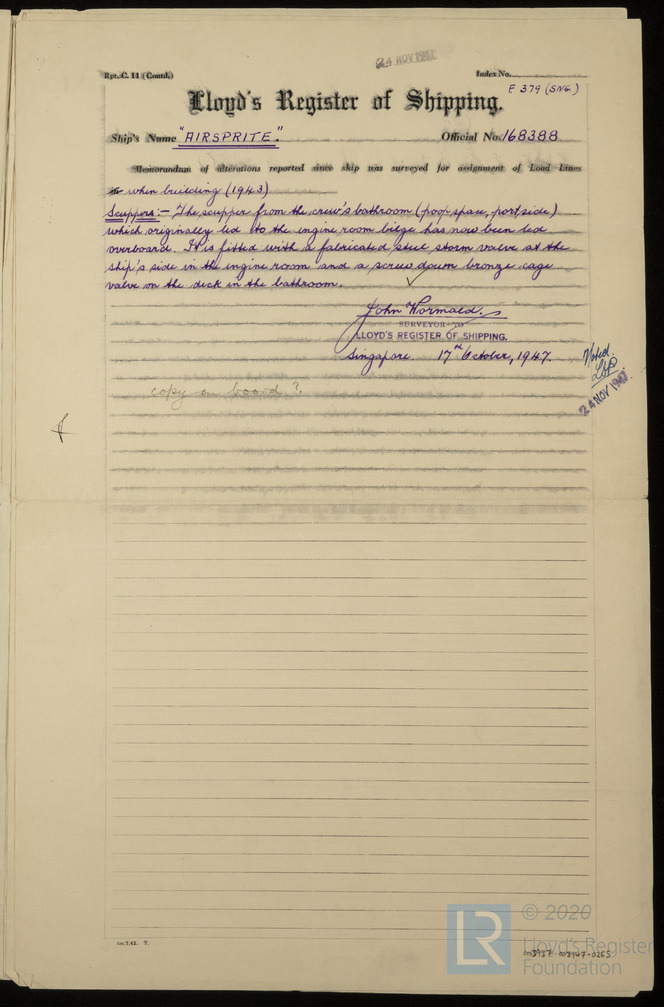 24 NOV 1947
Rpt. C. 11 (Contd.)
Index No.
F 379 (SNG.)
Lloyd's Register of Shipping.
Ship's Name "AIRSPRITE."
Official No. 168388
Memorandum of alterations reported since ship was surveyed for assignment of Load Lines
when building (1943)
Scuppers:- The scupper from the crew's bathroom (poop space, port side)
which originally led to the engine room bilge has now been led
overboard. It is fitted with a fabricated steel storm valve at the
ship's side in the engine room and a screw down bronze cage
valve on the deck in the bathroom.
John Wormald.
SURVEYOR TO
LLOYD'S REGISTER OF SHIPPING.
Singapore. 17th October, 1947.
Noted
24 NOV 1947
copy on board?
7.42. T.
LR
© 2020
Lloyd's Register
Foundation
003937-003947-0265